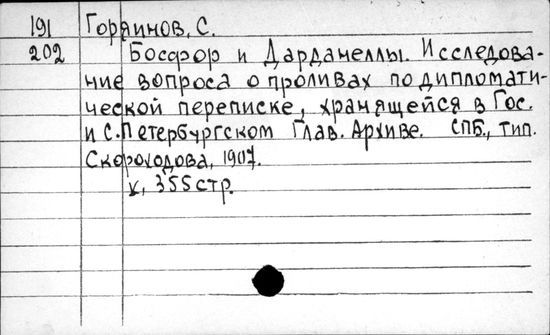 191 Горяинов, С.
202 Босфор и Дарданеллы. Исследова-
ние вопроса о проливах по дипломати-
ческой переписке, хранящейся в Гос.
и С.Петербургском Глав. Архиве. СПБ., тип.
Скороходова, 1907.
X, 355 стр.